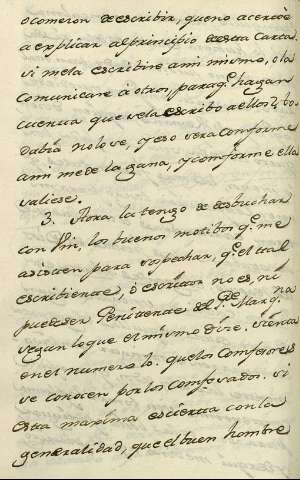 ocomeron de escribir, que no acerte
a explicar al principio de esta Carta.
si me la escribire a mi mismo, o la
Comunicare à otros, para q.e hagan
cuenta que se la escribo a ellos? to-
dabia no lo se, y eso sera Comforme
a mi me de la gana, y comforme ella
valiese.
3. Aora la tengo de desbuchar
con Vm, los buenos motibos q.e me
asisten para sospechar, q.e el tal
escribiente, ò escritor no es, ni
puede ser Penitente del P.e Marq.na
segun lo que el mismo dice. sienta
en el numero 10. que los Comfesores
se conocen por los comfesados. si
esta maxima es cierta con la
generalidad, que el buen hombre